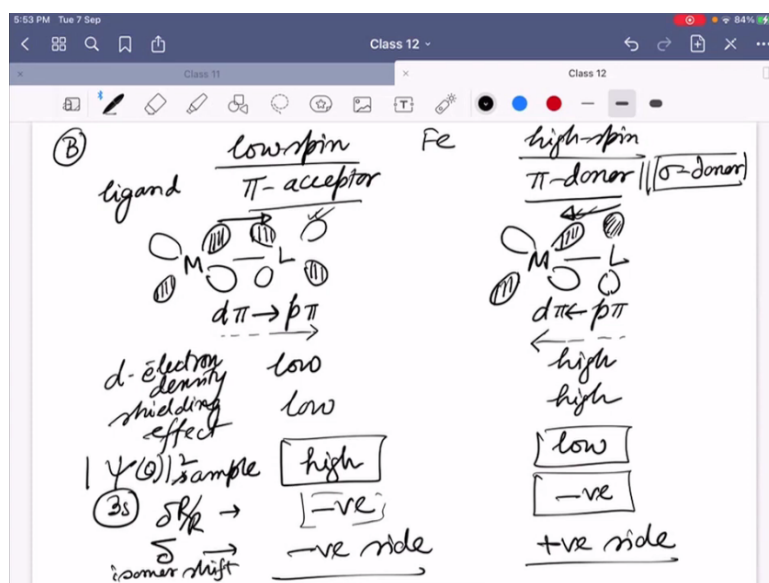 5:53 PM Tue 7 Sep
84%
Class 12
Class 11
Class 12
B low spin Fe high-spin
ligand π-acceptor π-donor || σ-donor
M L M L
dπ→pπ dπ←pπ
d-electron density low high
shielding effect low high
|Ψ(0)|² sample high low
3s δR/R → -ve -ve
δ → -ve side +ve side
isomer shift